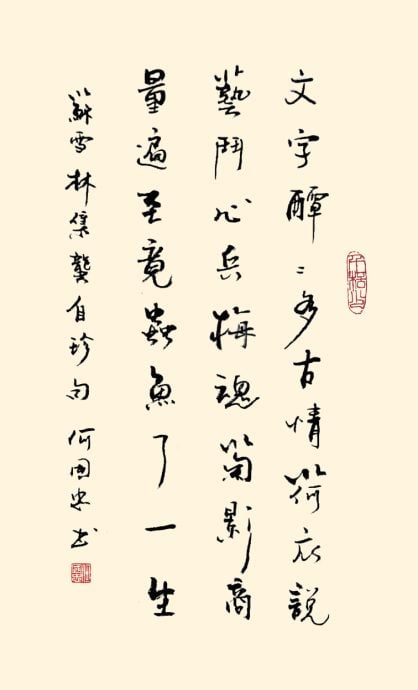 文字醰〻多古情荷衣説
藝鬥心兵梅魂菊影商
量遍至竟蟲魚了一生
蘇雪林集龔自珍句 何國忠書